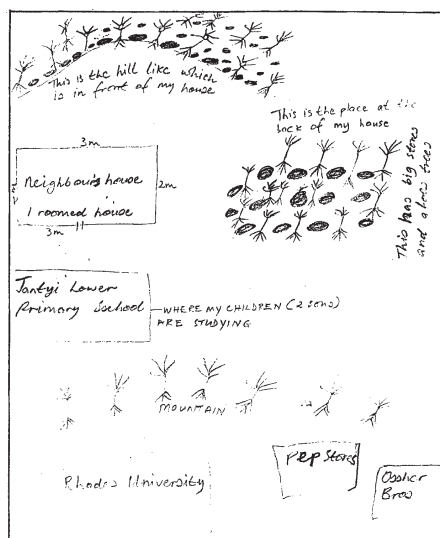 This is the hill like which
is in front of my house
This is the place at the
back of my house
This has big stones
and aloes trees
3m
Neighbour's house
1 roomed house
2m
3m
Jantyi Lower
Primary School
WHERE MY CHILDREN (2 sons)
ARE STUDYING
MOUNTAIN
Rhodes University
Pep Stores
Ossher
Bros